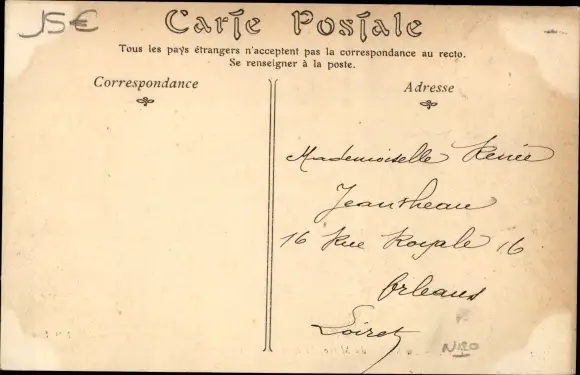 15€
Carte Postale
Tous les pays étrangers n'acceptent pas la correspondance au recto.
Se renseigner à la poste.
Correspondance
Adresse
Mademoiselle Renée
Jeantheau
16 Rue Royale 16
Orleans
Loiret